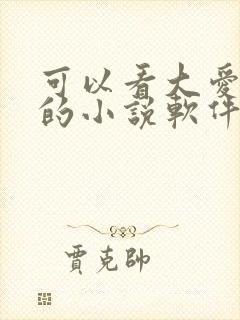 可以看大愛
的小說軟件
賈克帥